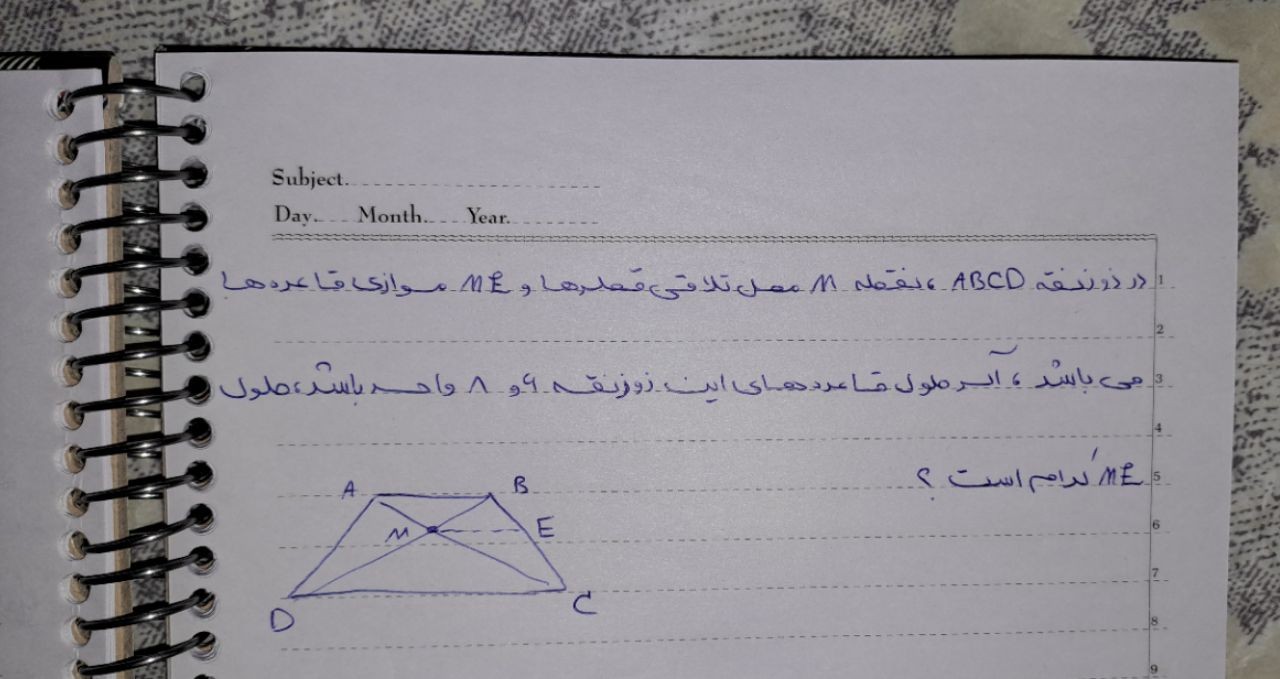 Subject.
Day. Month. Year.
در ذوزنقه ABCD ، نقطه M محل تلاقی قطرها و ME موازی قاعده‌ها 1
2
می باشد ، اگر طول قاعده‌های این ذوزنقه ۶ و ۸ واحد باشد، طول 3
4
ME کدام است ؟ 5
A B
M E 6
7
D C
8
9